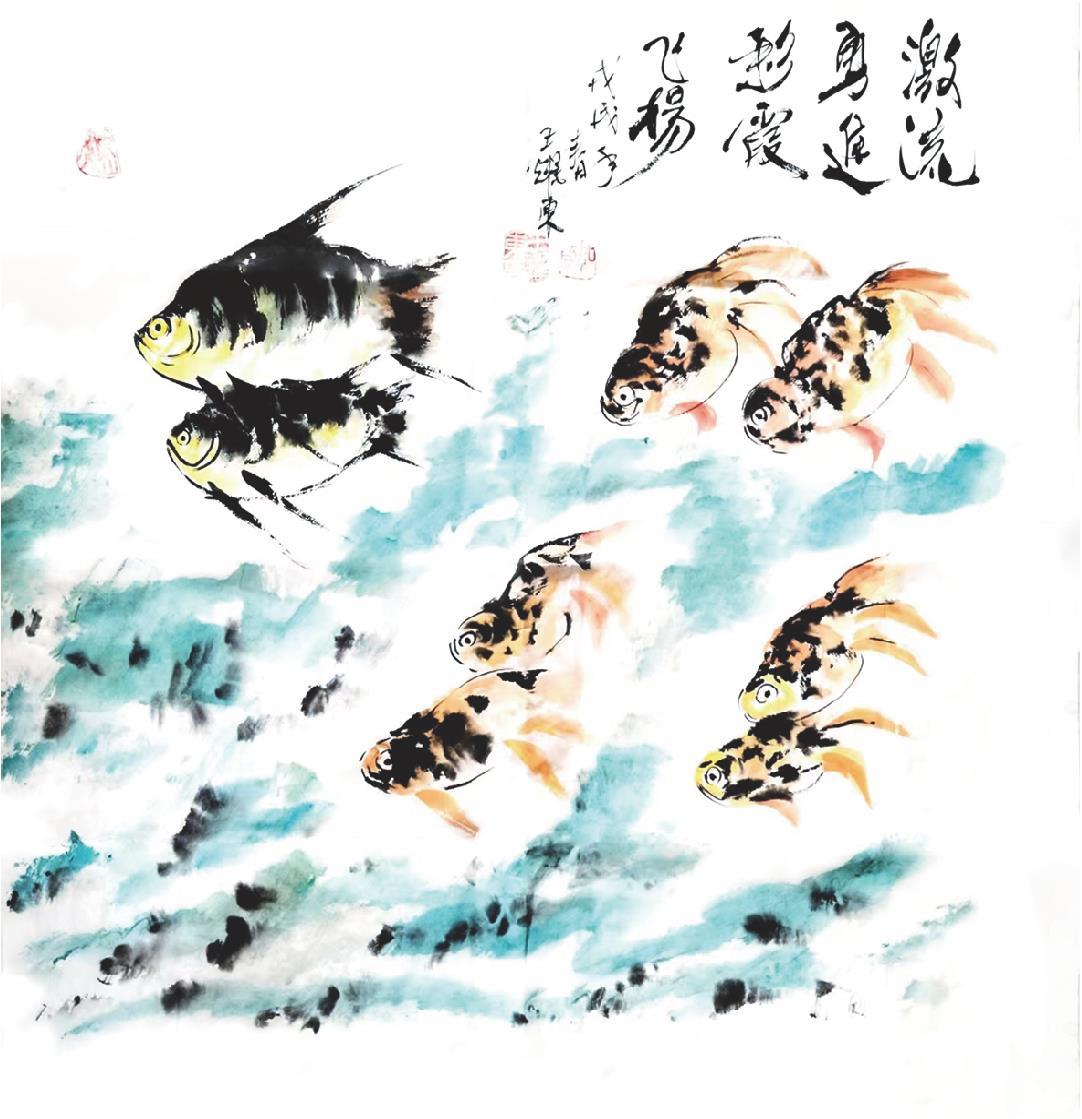 激流
勇進
彩霞
飞楊
戊戌年
春
王 東